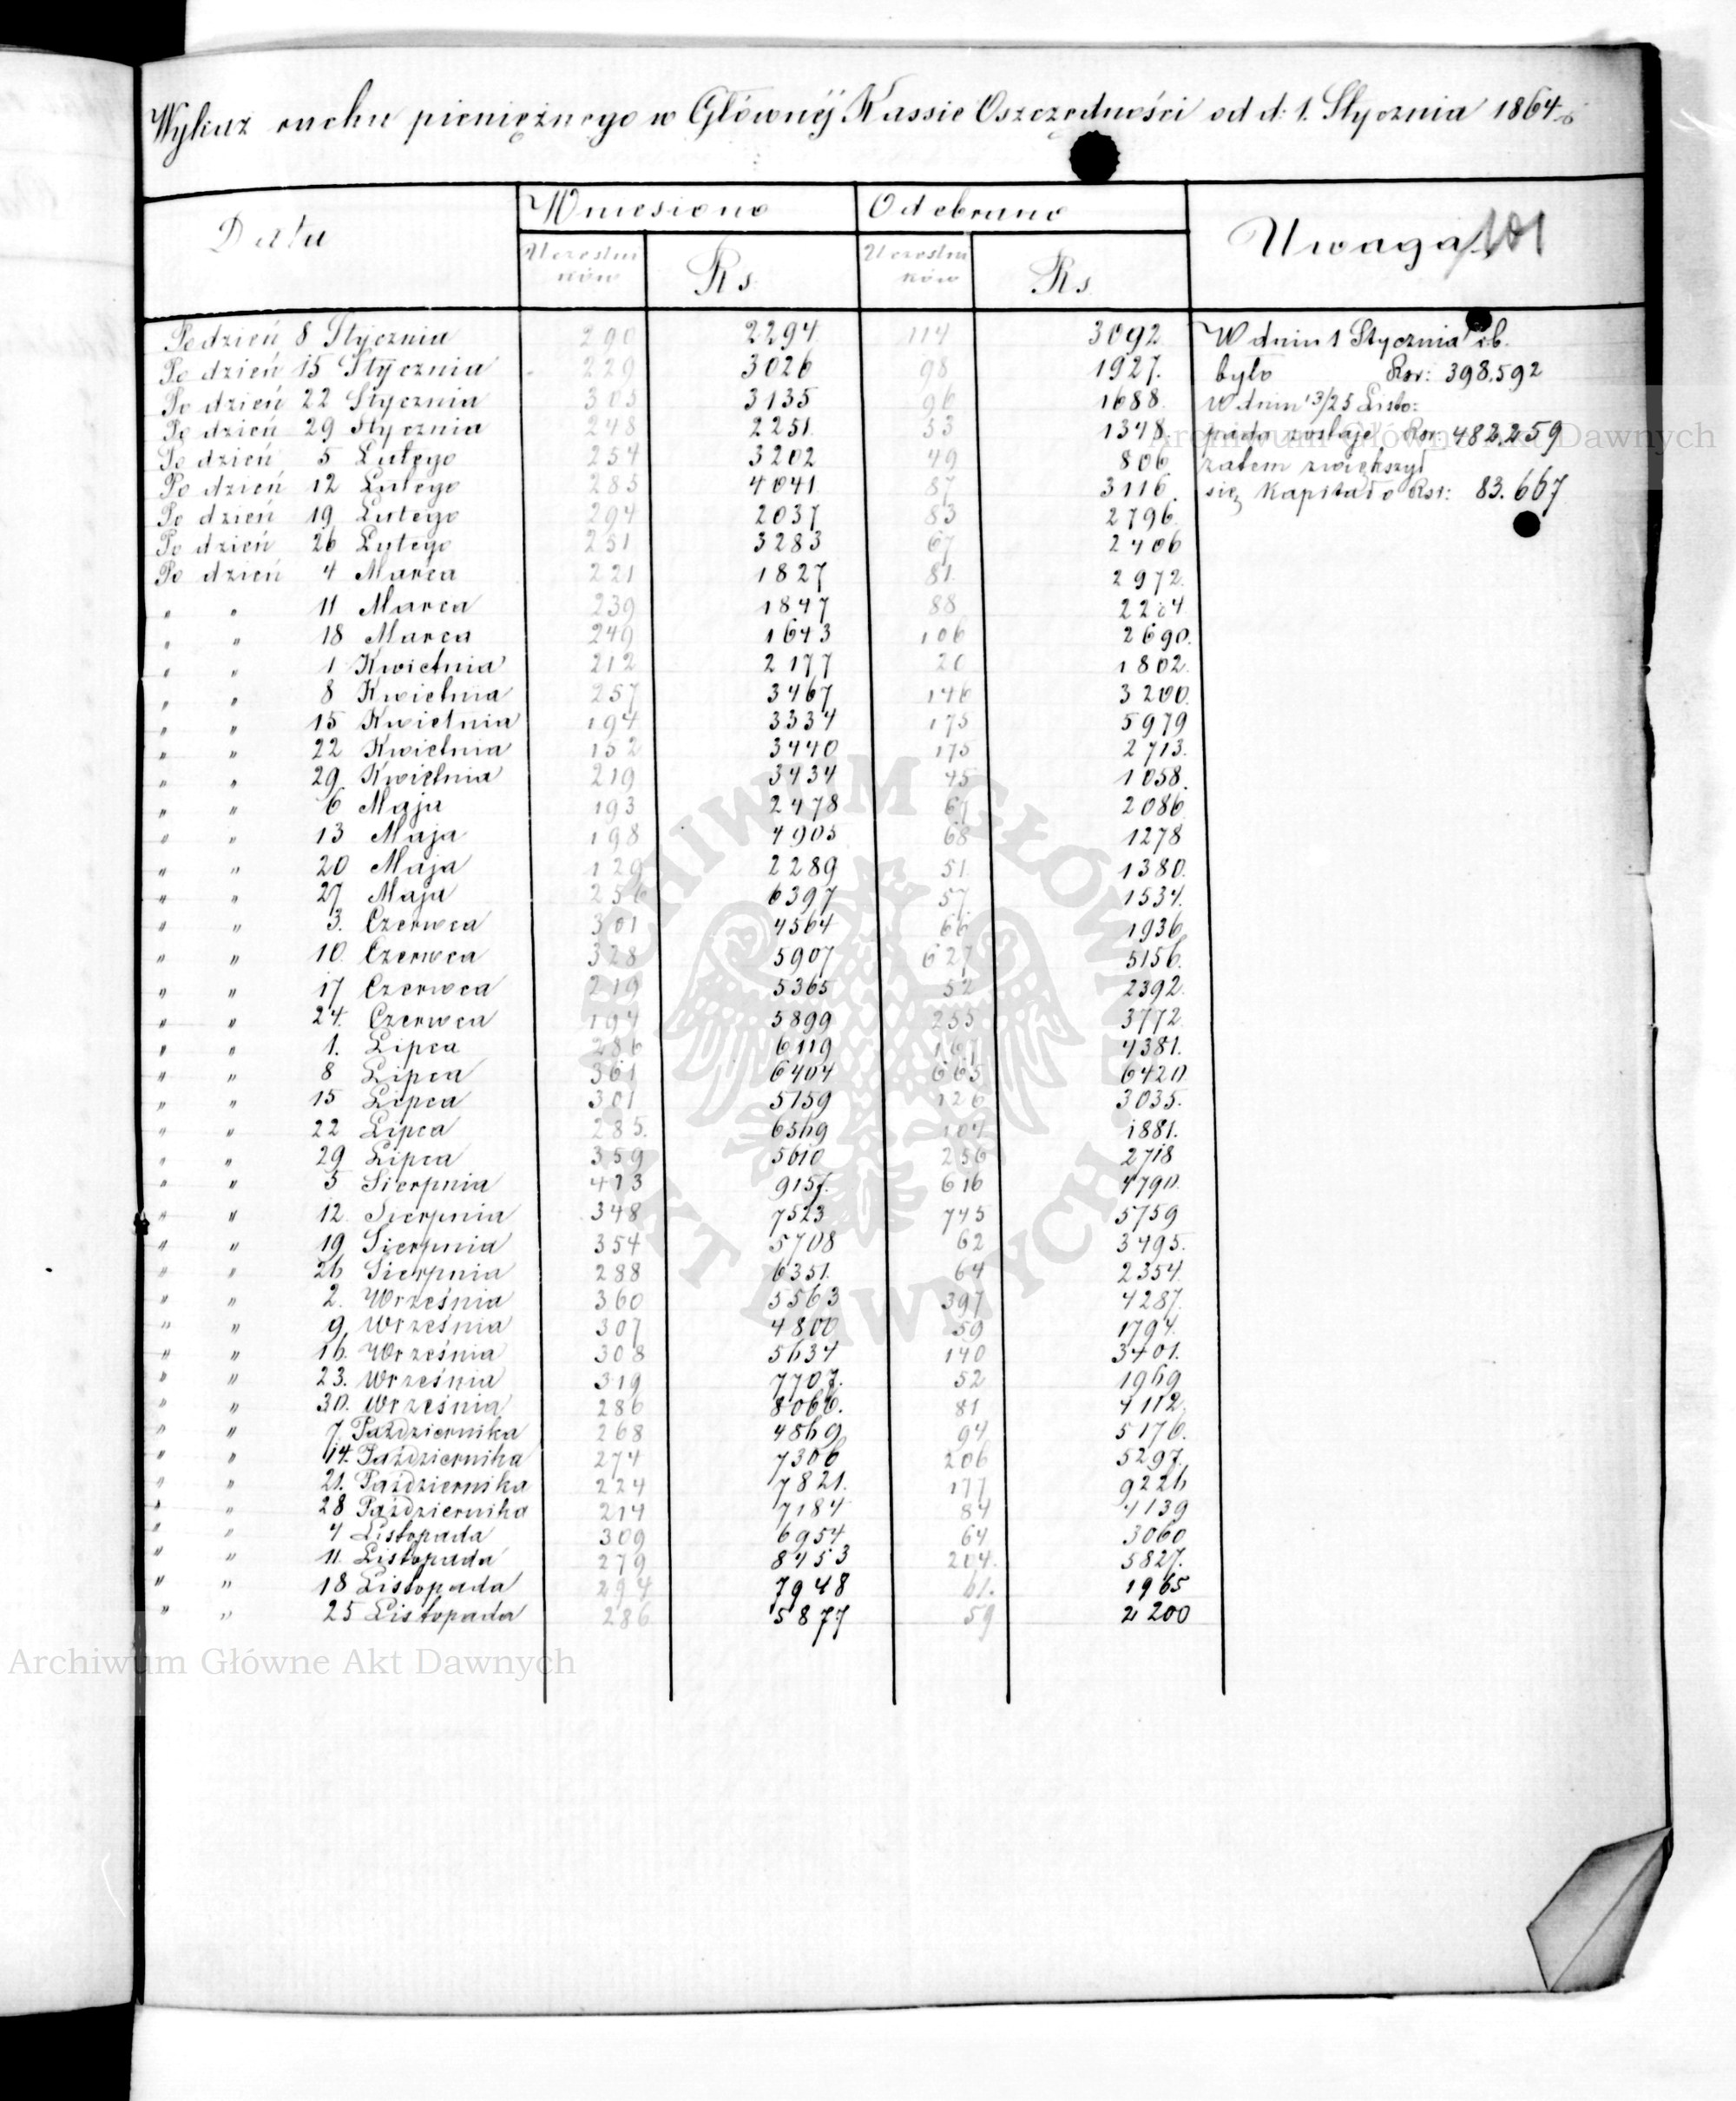 Wykaz ruchu pieniężnego w Głównéj Kassie Oszczędności od d: 1. Stycznia 1864
Data Wniesiono Odebrano Uwaga 101
Uczestników Rs Uczestników Rs
Po dzień 8 Stycznia 290 2294 114 3092 W dniu 1 Stycznia r.b.
Po dzień 15 Stycznia 229 3026 98 1927. było Rsr: 398.592
Po dzień 22 Stycznia 305 3135 96 1688. W dniu 13/25 Listo:
Po dzień 29 Stycznia 248 2251 53 1348. pada zostaje Rsr: 482.259
Po dzień 5 Lutego 254 3202 49 806 zatem zwiększył
Po dzień 12 Lutego 285 4041 87 3116. się Kapitał o Rsr: 83.667
Po dzień 19 Lutego 294 2037 83 2796.
Po dzień 26 Lutego 251 3283 67 2406
Po dzień 4 Marca 221 1827 81. 2972.
" " 11 Marca 239 1847 88
" " 18 Marca 249 1643 106 2690.
" " 1 Kwietnia 212 2177 20 1802.
" " 8 Kwietnia 257 3467 146 3200.
" " 15 Kwietnia 194 3334 175 5979
" " 22 Kwietnia 152 3440 175 2713.
" " 29 Kwietnia 219 3434 45 1058.
" " 6 Maja 193 2478 67 2086
" " 13 Maja 198 4905 68 1278
" " 20 Maja 129 2289 51. 1380.
" " 27 Maja 256 6397 57 1534.
" " 3. Czerwca 301 4564 66 1936.
" " 10. Czerwca 328 5907 627 5156.
" " 17 Czerwca 219 5365 52 2392.
" " 24. Czerwca 194 5899 255 3772
" " 1. Lipca 286 6119 167 4381.
" " 8 Lipca 361 6404 665 6420
" " 15 Lipca 301 5759 126 3035.
" " 22 Lipca 285. 6569 104 1881.
" " 29 Lipca 359 5610 256 2718
" " 5 Sierpnia 473 9157. 616 4790.
" " 12. Sierpnia 348 7523 745 5759
" " 19 Sierpnia 354 5708 62 3495.
" " 26 Sierpnia 288 6351. 64 2354.
" " 2. Września 360 5563 397 4287.
" " 9. Września 307 4800 59 1794.
" " 16. Września 308 5634 140 3401.
" " 23. Września 319 7707. 52 1969
" " 30. Września 286 8066. 81 4112.
" " 7. Października 268 4869 94 5176.
" " 14. Października 274 7306 206 5297.
" " 21. Października 224 7821. 177 9226
" " 28 Października 214 7184 84 4139
" " 4 Listopada 309 6954 64 3060
" " 11. Listopada 279 8453 204. 5827.
" " 18 Listopada 294 7948 61. 1965
" " 25 Listopada 286 5877 59 2200
Archiwum Główne Akt Dawnych
Archiwum Główne Akt Dawnych
ARCHIWUM GŁÓWNE AKT DAWNYCH